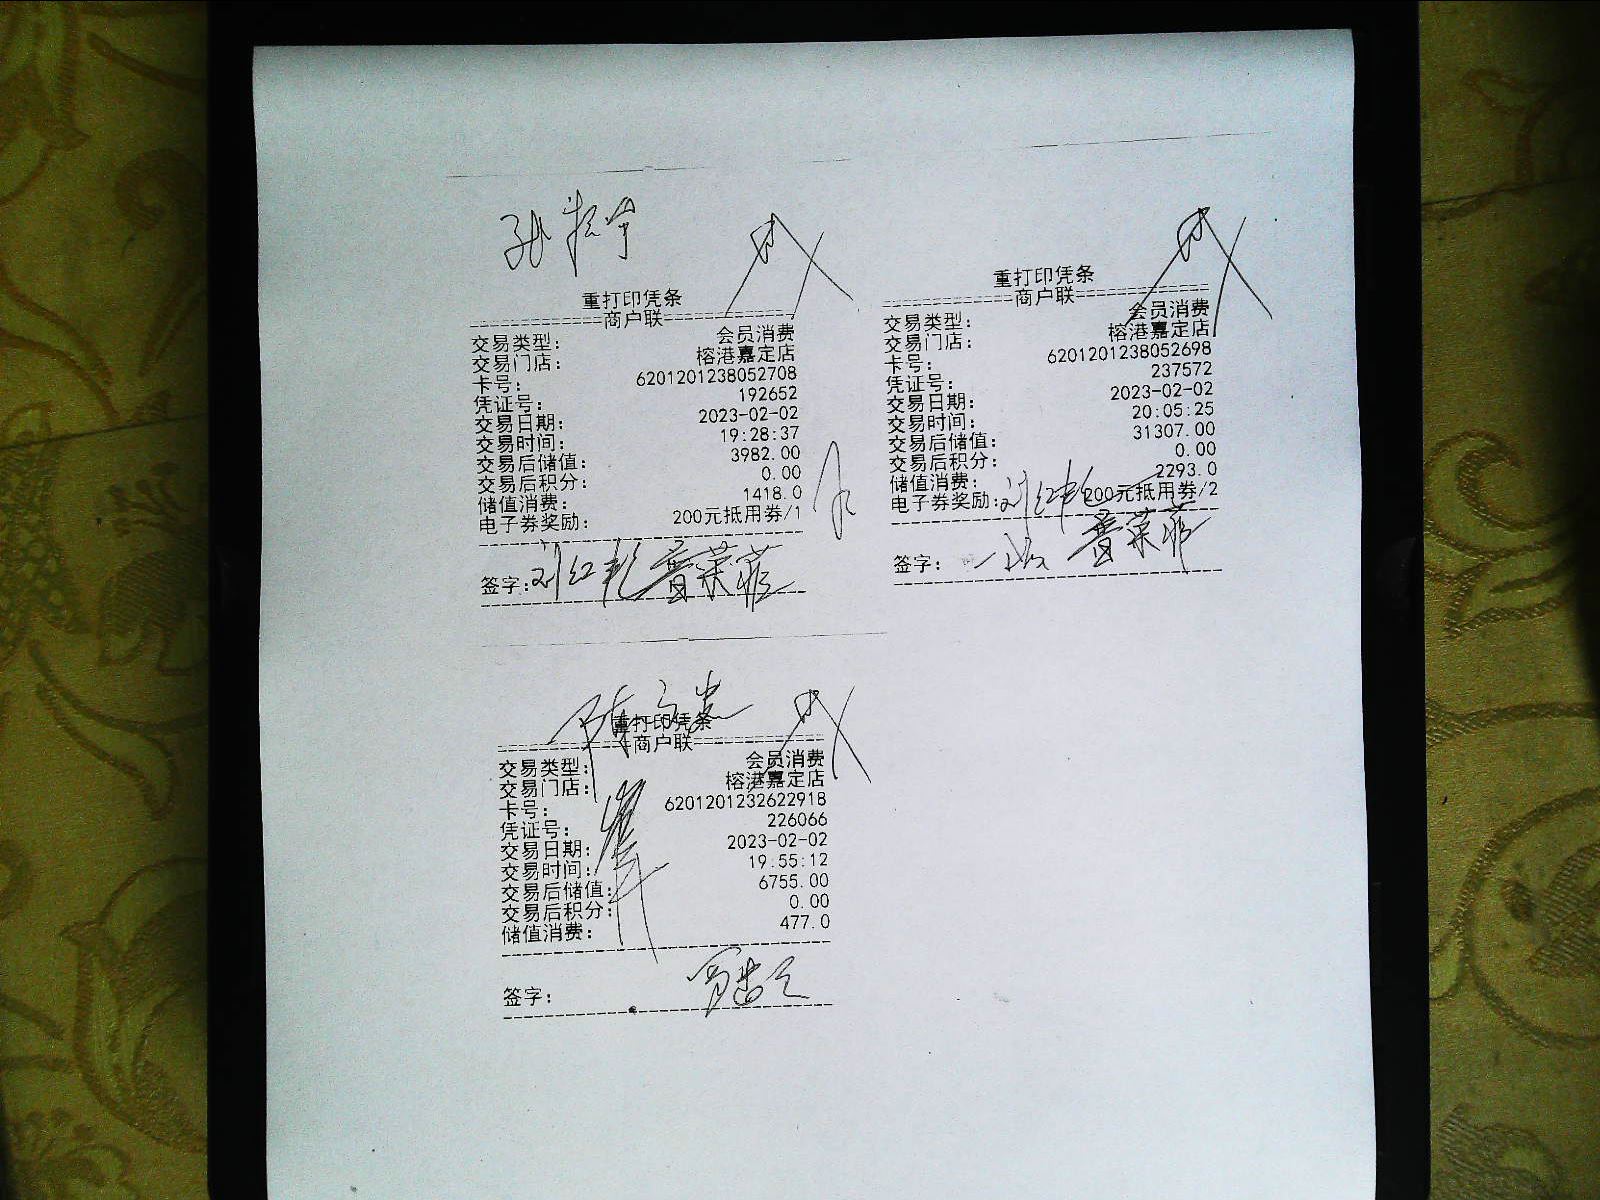 重打印凭条
商户联
交易类型: 会员消费
交易门店: 榕港嘉定店
卡号: 6201201238052708
凭证号: 192652
交易日期: 2023-02-02
交易时间: 19:28:37
交易后储值: 3982.00
交易后积分: 0.00
储值消费: 1418.0
电子券奖励: 200元抵用券/1
签字: 刘红艳
重打印凭条
商户联
交易类型: 会员消费
交易门店: 榕港嘉定店
卡号: 6201201238052698
凭证号: 237572
交易日期: 2023-02-02
交易时间: 20:05:25
交易后储值: 31307.00
交易后积分: 0.00
储值消费: 2293.0
电子券奖励: 200元抵用券/2
刘红艳
签字:
重打印凭条
商户联
交易类型: 会员消费
交易门店: 榕港嘉定店
卡号: 6201201232622918
凭证号: 226066
交易日期: 2023-02-02
交易时间: 19:55:12
交易后储值: 6755.00
交易后积分: 0.00
储值消费: 477.0
签字: